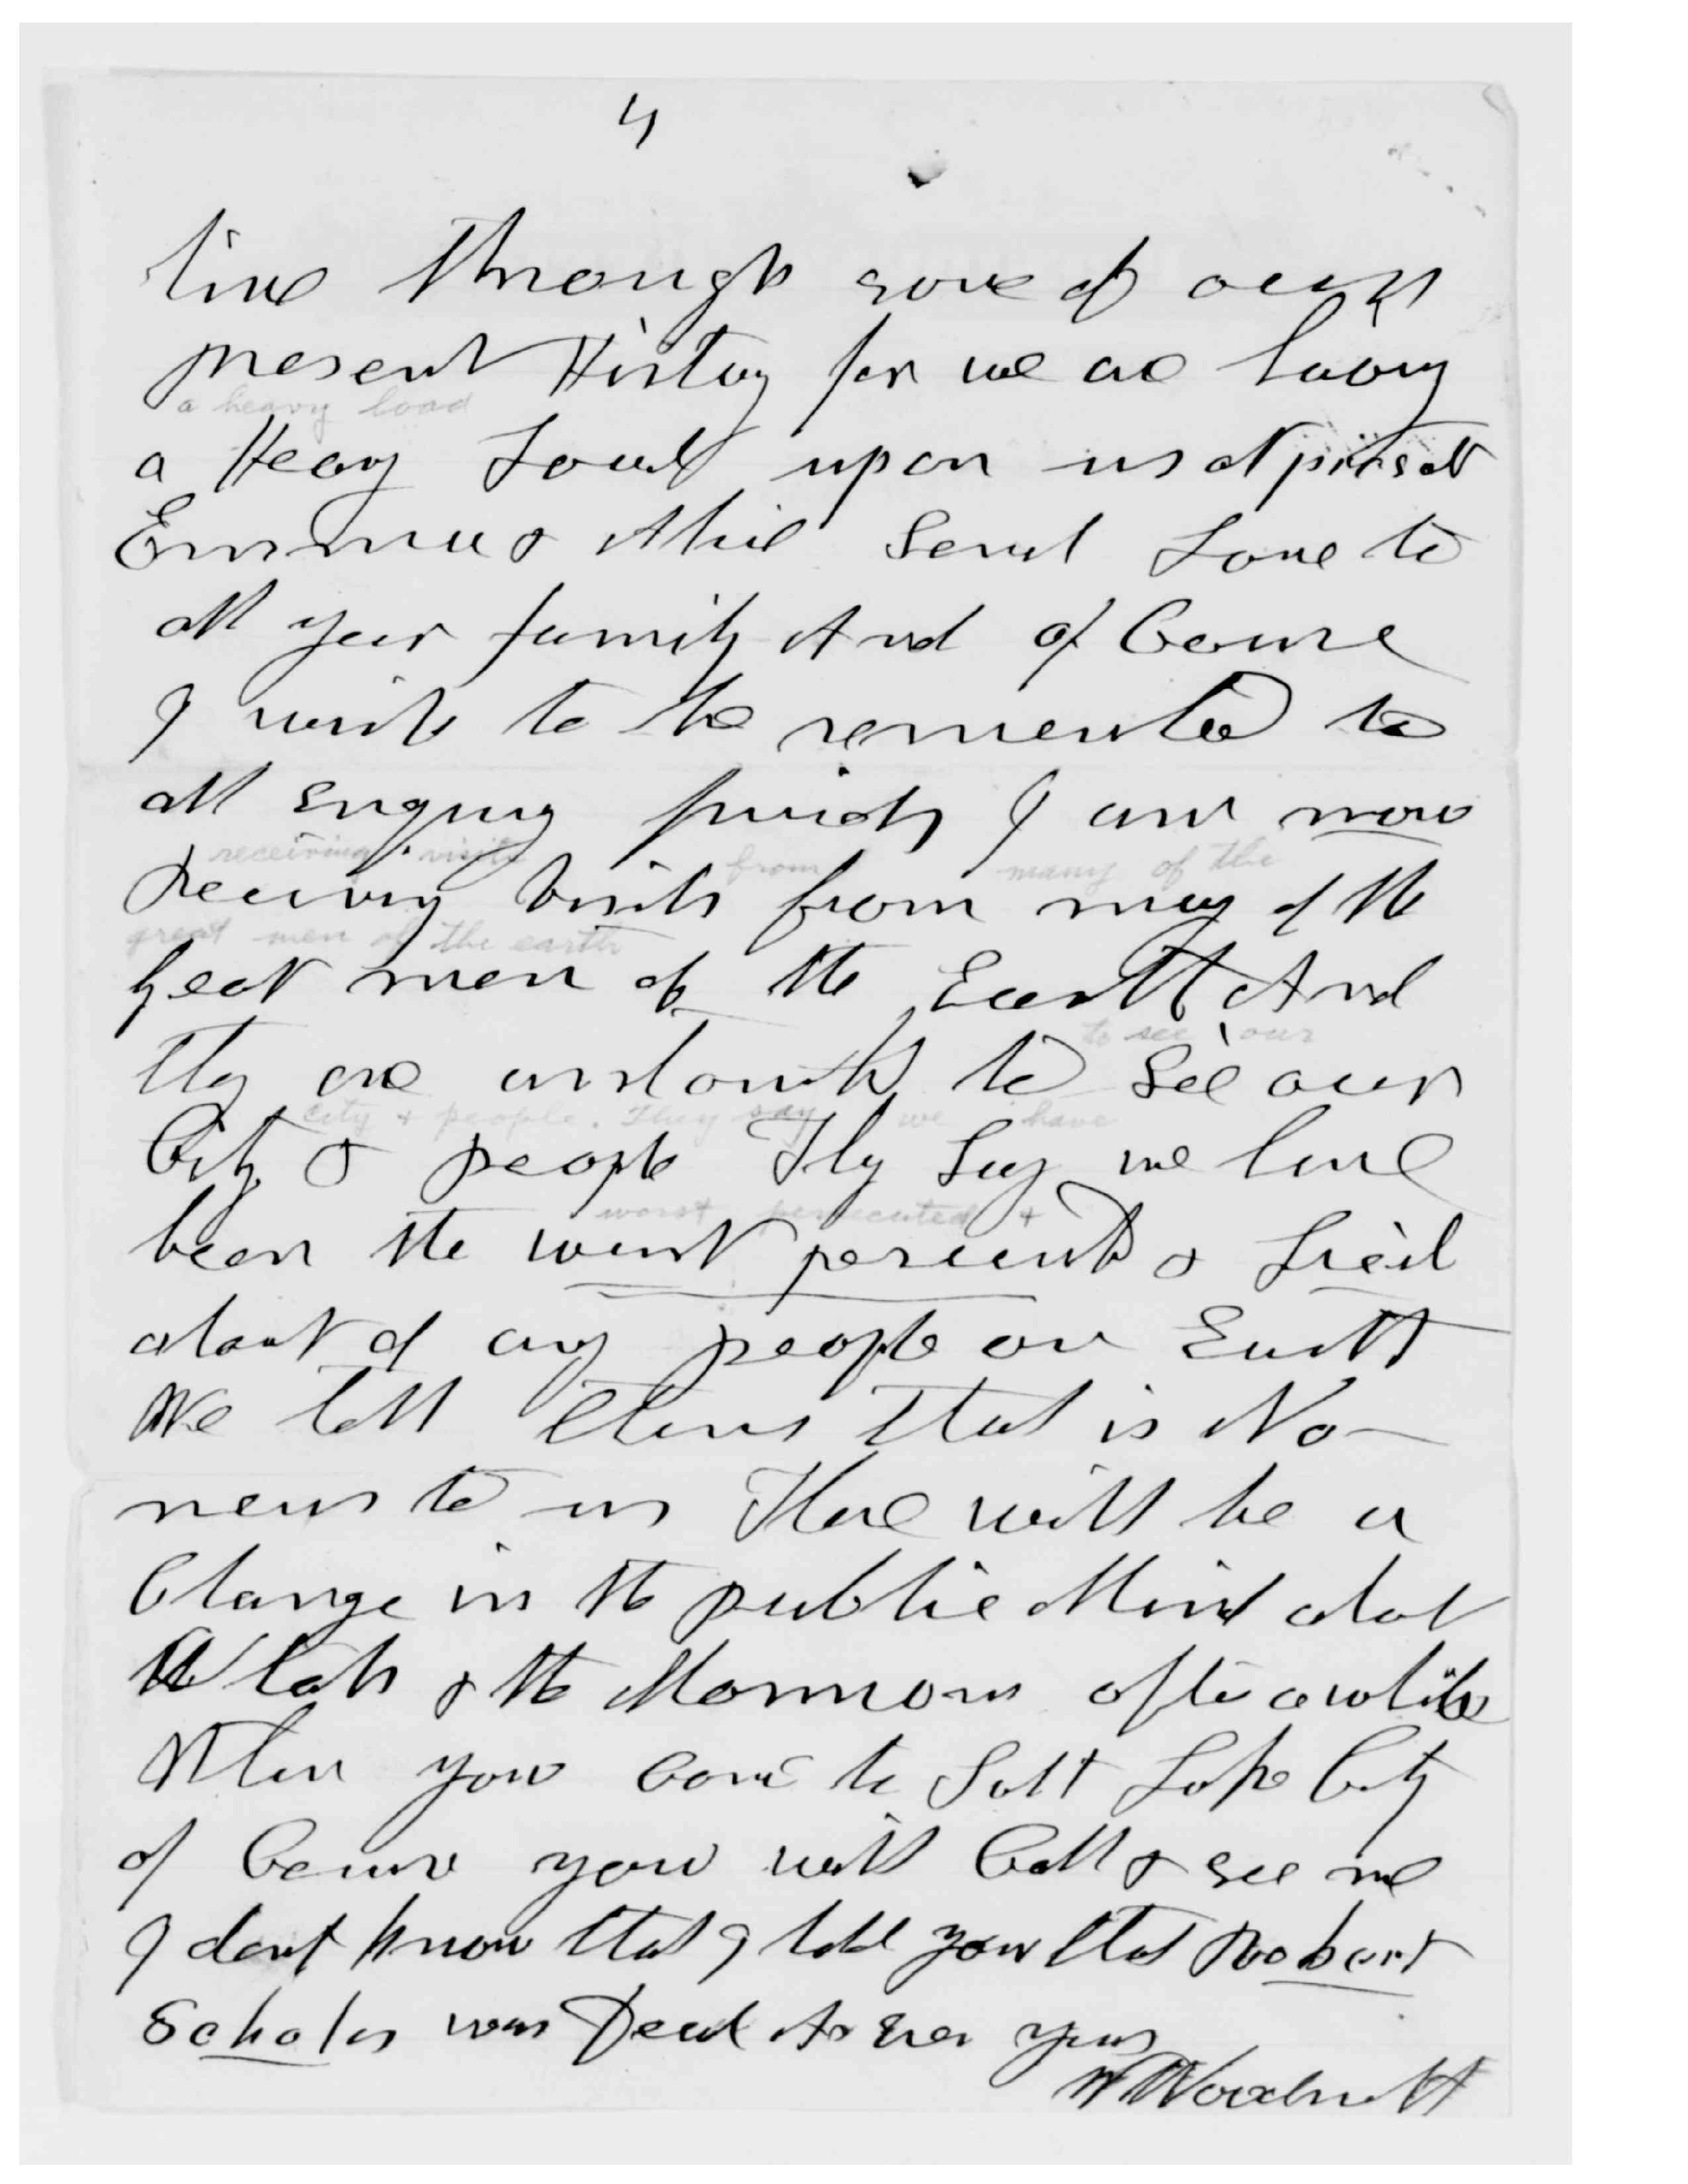 4
time through some of our
present History for we are having
a heavy load
a Heavy Load upon us at present
Emma & Alice Send Love to
all your family And of Course
I wish to be remembered to
all enquiring friends I am now
receiving visits from many of the
Receiving visits from many of the
great men of the earth
great men of the Earth And
to see our
they are anxious to See our
city & people. They say we have
City & people They Say we have
worst persecuted &
been the worst persecuted & Lied
about of any people on Earth
We tell them that is No
news to us There will be a
Change in the public Mind about
Utah & the Mormons after awhile
When you Come to Salt Lake City
of Course you will Call & see me
I dont know that I told you that Robert
Scholes was Dead As Ever yours
W Woodruff